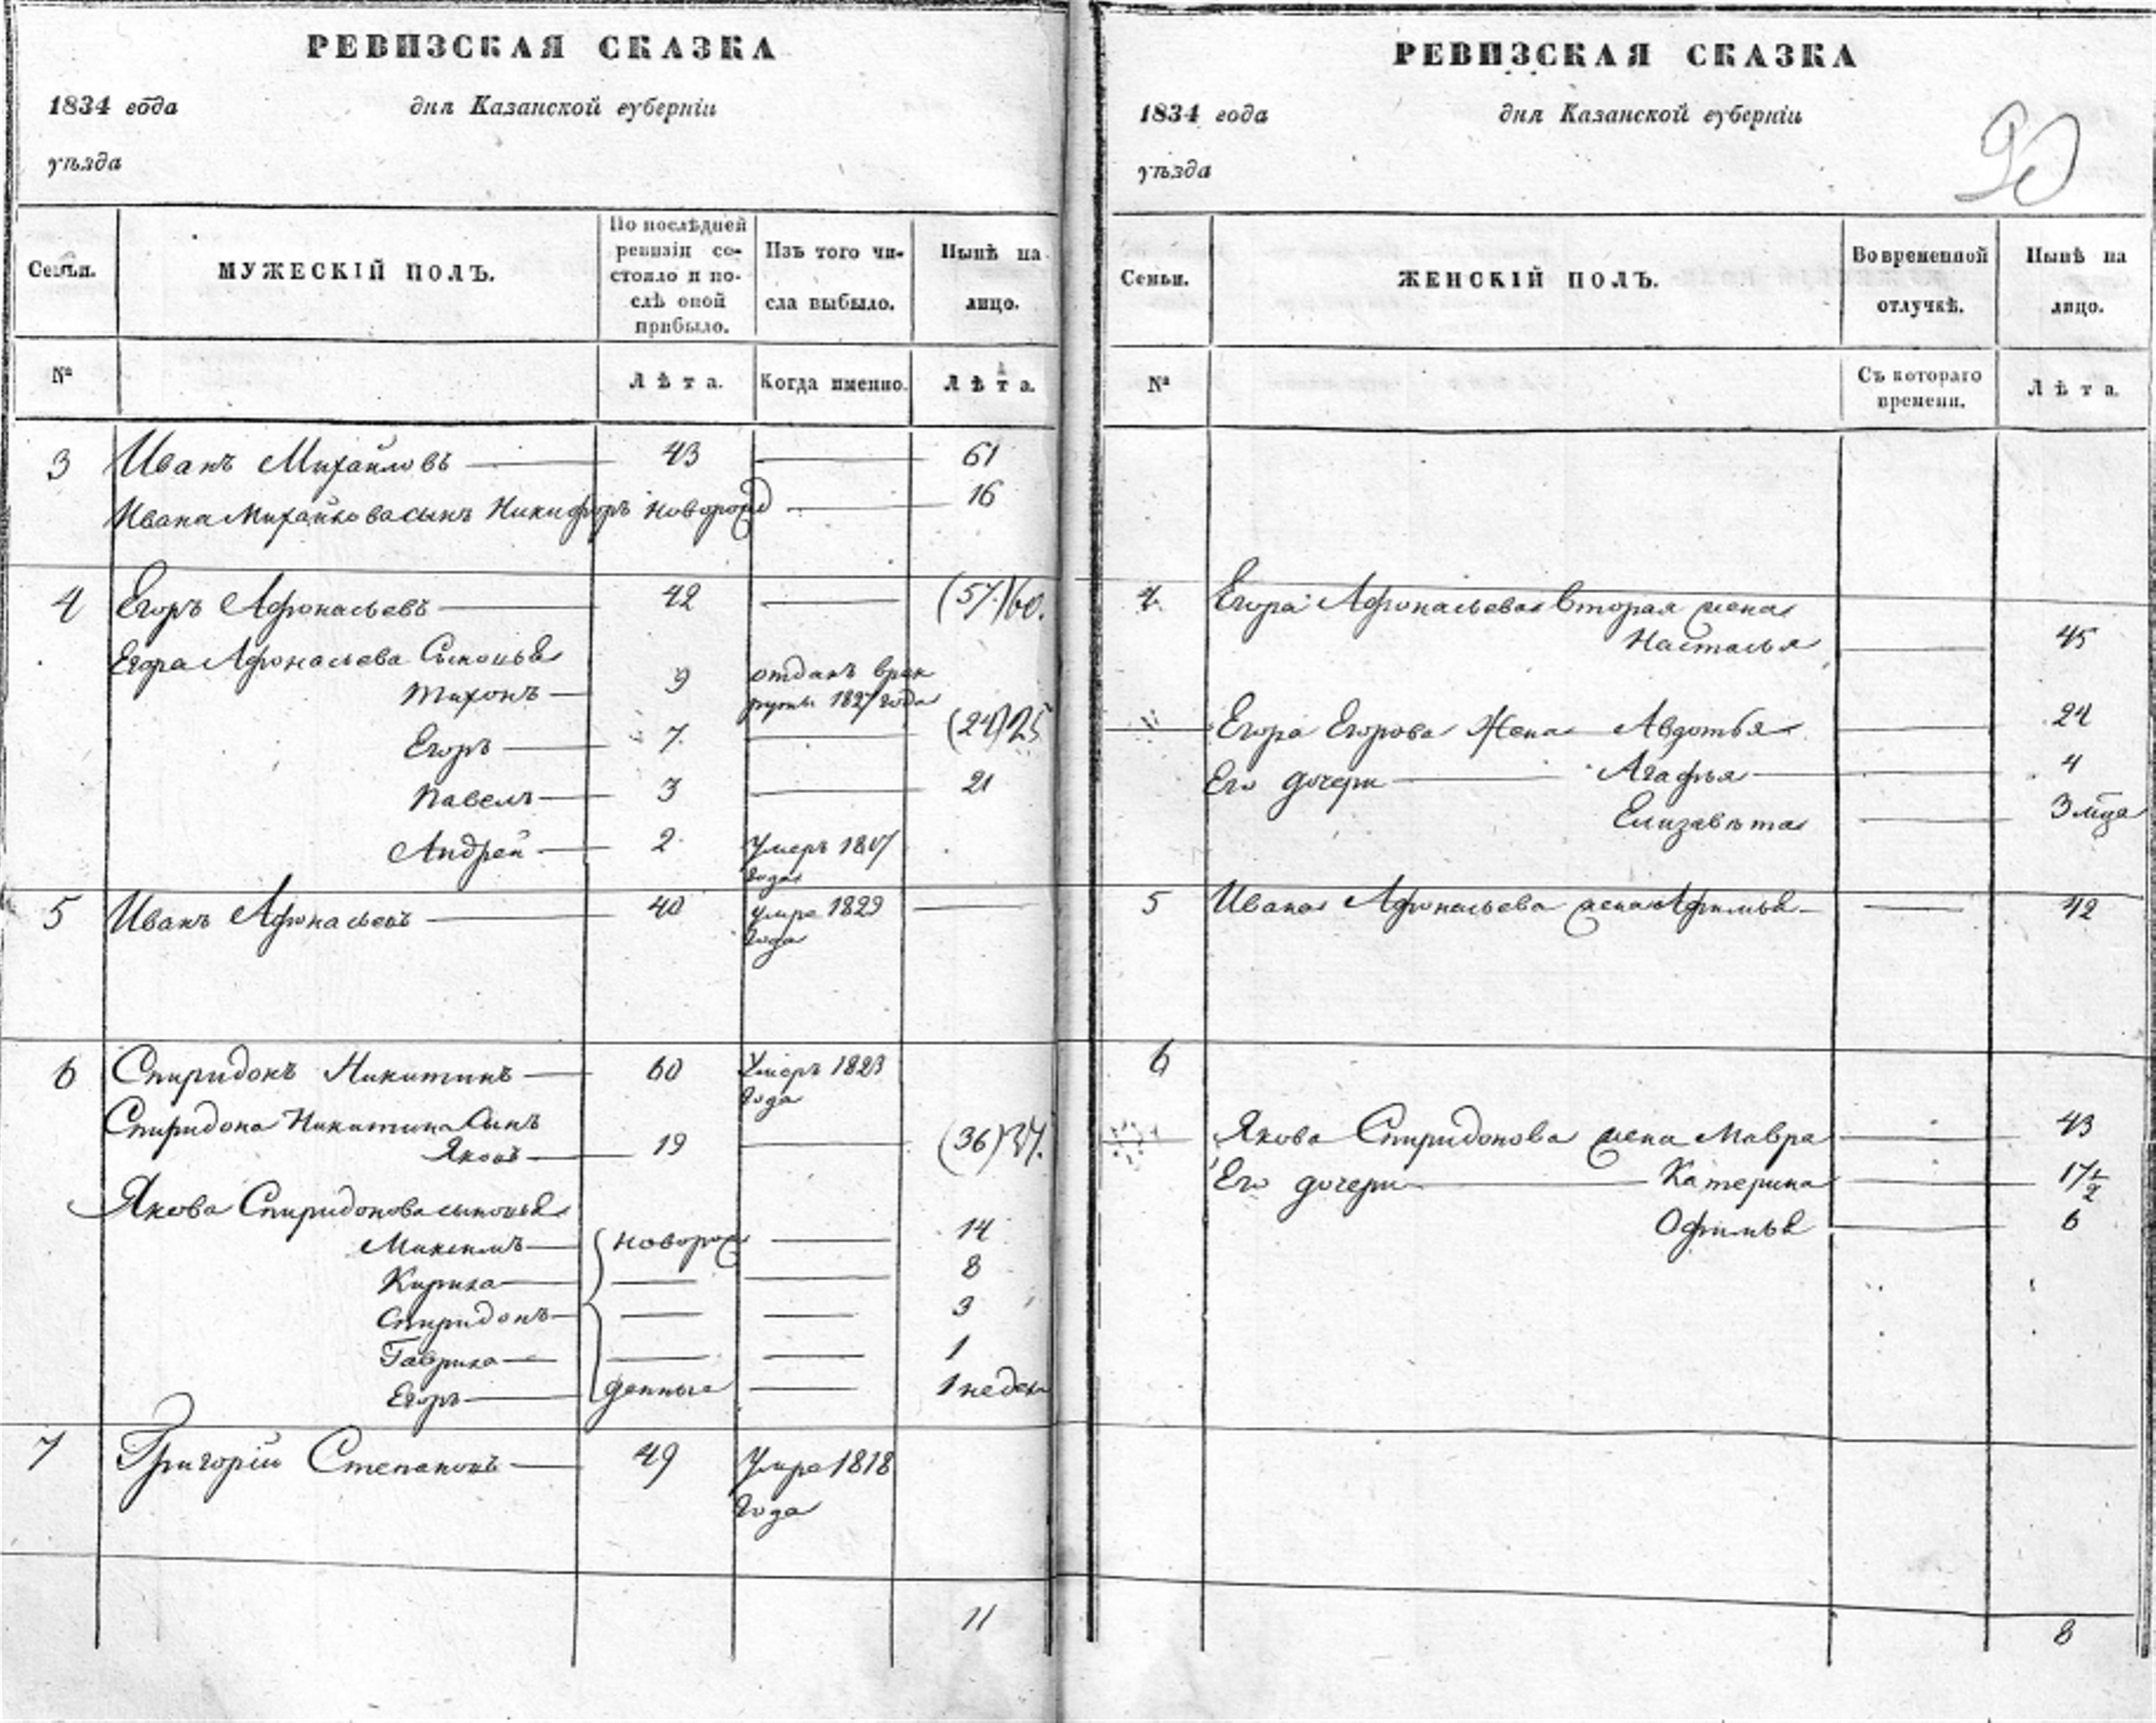 РЕВИЗСКАЯ СКАЗКА
1834 года дня Казанской губерніи
уѣзда
Семьи. МУЖЕСКІЙ ПОЛЪ. По послѣдней ревизіи состояло и послѣ оной прибыло. Изъ того числа выбыло. Нынѣ на лицо.
№ Лѣта. Когда именно. Лѣта.
3 Иванъ Михайловъ 43 61
Ивана Михайлова сынъ Никифоръ новорожд 16
4 Егоръ Афонасьевъ 42 (57)60.
Егора Афонасьева Сыновья
Тихонъ 9 отданъ врек
руты 1827 года
Егоръ 7. (24)25
Павелъ 3 21
Андрей 2. Умеръ 1817
года
5 Иванъ Афонасьевъ 40 умре 1829
года
6 Спиридонъ Никитинъ 60 Умеръ 1823
года
Спиридона Никитина Сынъ
Яковъ 19 (36)37.
Якова Спиридонова сыновья
Максимъ новорож 14
Кирила 8
Спиридонъ 3
Гаврила 1
Егоръ денные 1 недел
7 Григорій Степановъ 49 Умре 1818
года
11
РЕВИЗСКАЯ СКАЗКА
1834 года дня Казанской губерніи
уѣзда
90
Семьи. ЖЕНСКІЙ ПОЛЪ. Во временной отлучкѣ. Нынѣ на лицо.
№ Съ котораго времени. Лѣта.
4. Егора Афонасьева вторая жена
Настасья 45
Егора Егорова Жена Авдотья 24
Его дочери Агафья 4
Елизавѣта 3 мца
5 Ивана Афонасьева жена Афимья 42
6
Якова Спиридонова жена Мавра 43
Его дочери Катерина 17½
Офимья 6
8